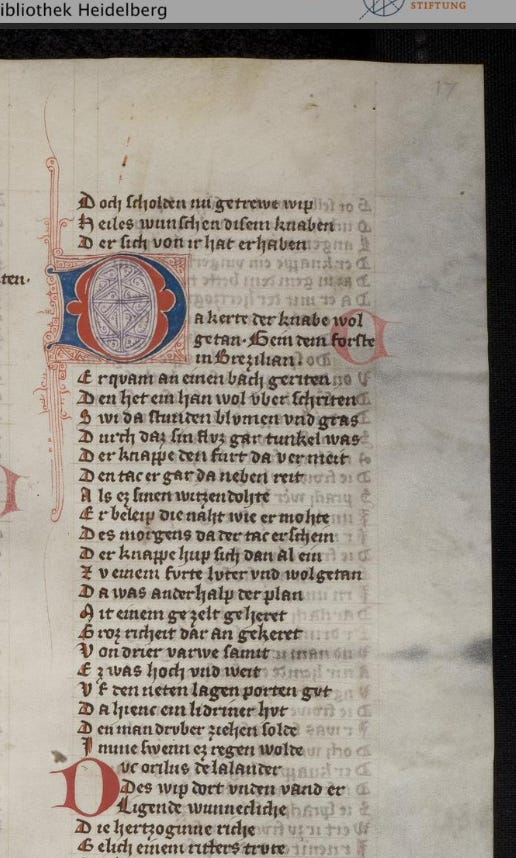 ibliothek Heidelberg
STIFTUNG
17
Doch scholden nu getrewe wip
Heiles wunschen disem knaben
Der sich von ir hat erhaben
ten.
Da kerte der knabe wol
getan. Gein dem forste
in Brezilian.
Er qvam an einen bach geriten
Den het ein han wol vber schriten
Swi da stunden blvmen vnd gras
Durch daz sin flvz gar tunkel was
Der knappe den furt da ver meit
Den tac er gar da neben reit
Als ez sinen witzen dohte
Er beleip die naht wie er mohte
Des morgens da der tac erschein
Der knappe hup sich dan al ein
Zv einem fvrte lvter vnd wolgetan
Da was anderhalp der plan
Mit einem gezelt geheret
Groz richeit dar an gekeret
Von drier varwe samit
Ez was hoch vnd weit
Vf den neten lagen porten gvt
Da hienc ein lidriner hvt
Den man drvber ziehen solde
Imme swenn ez regen wolde
Dvc orilus delalander
Des wip dort vnden vand er
Ligende wunnecliche
Die hertzoginne riche
Gelich einem ritters trvte